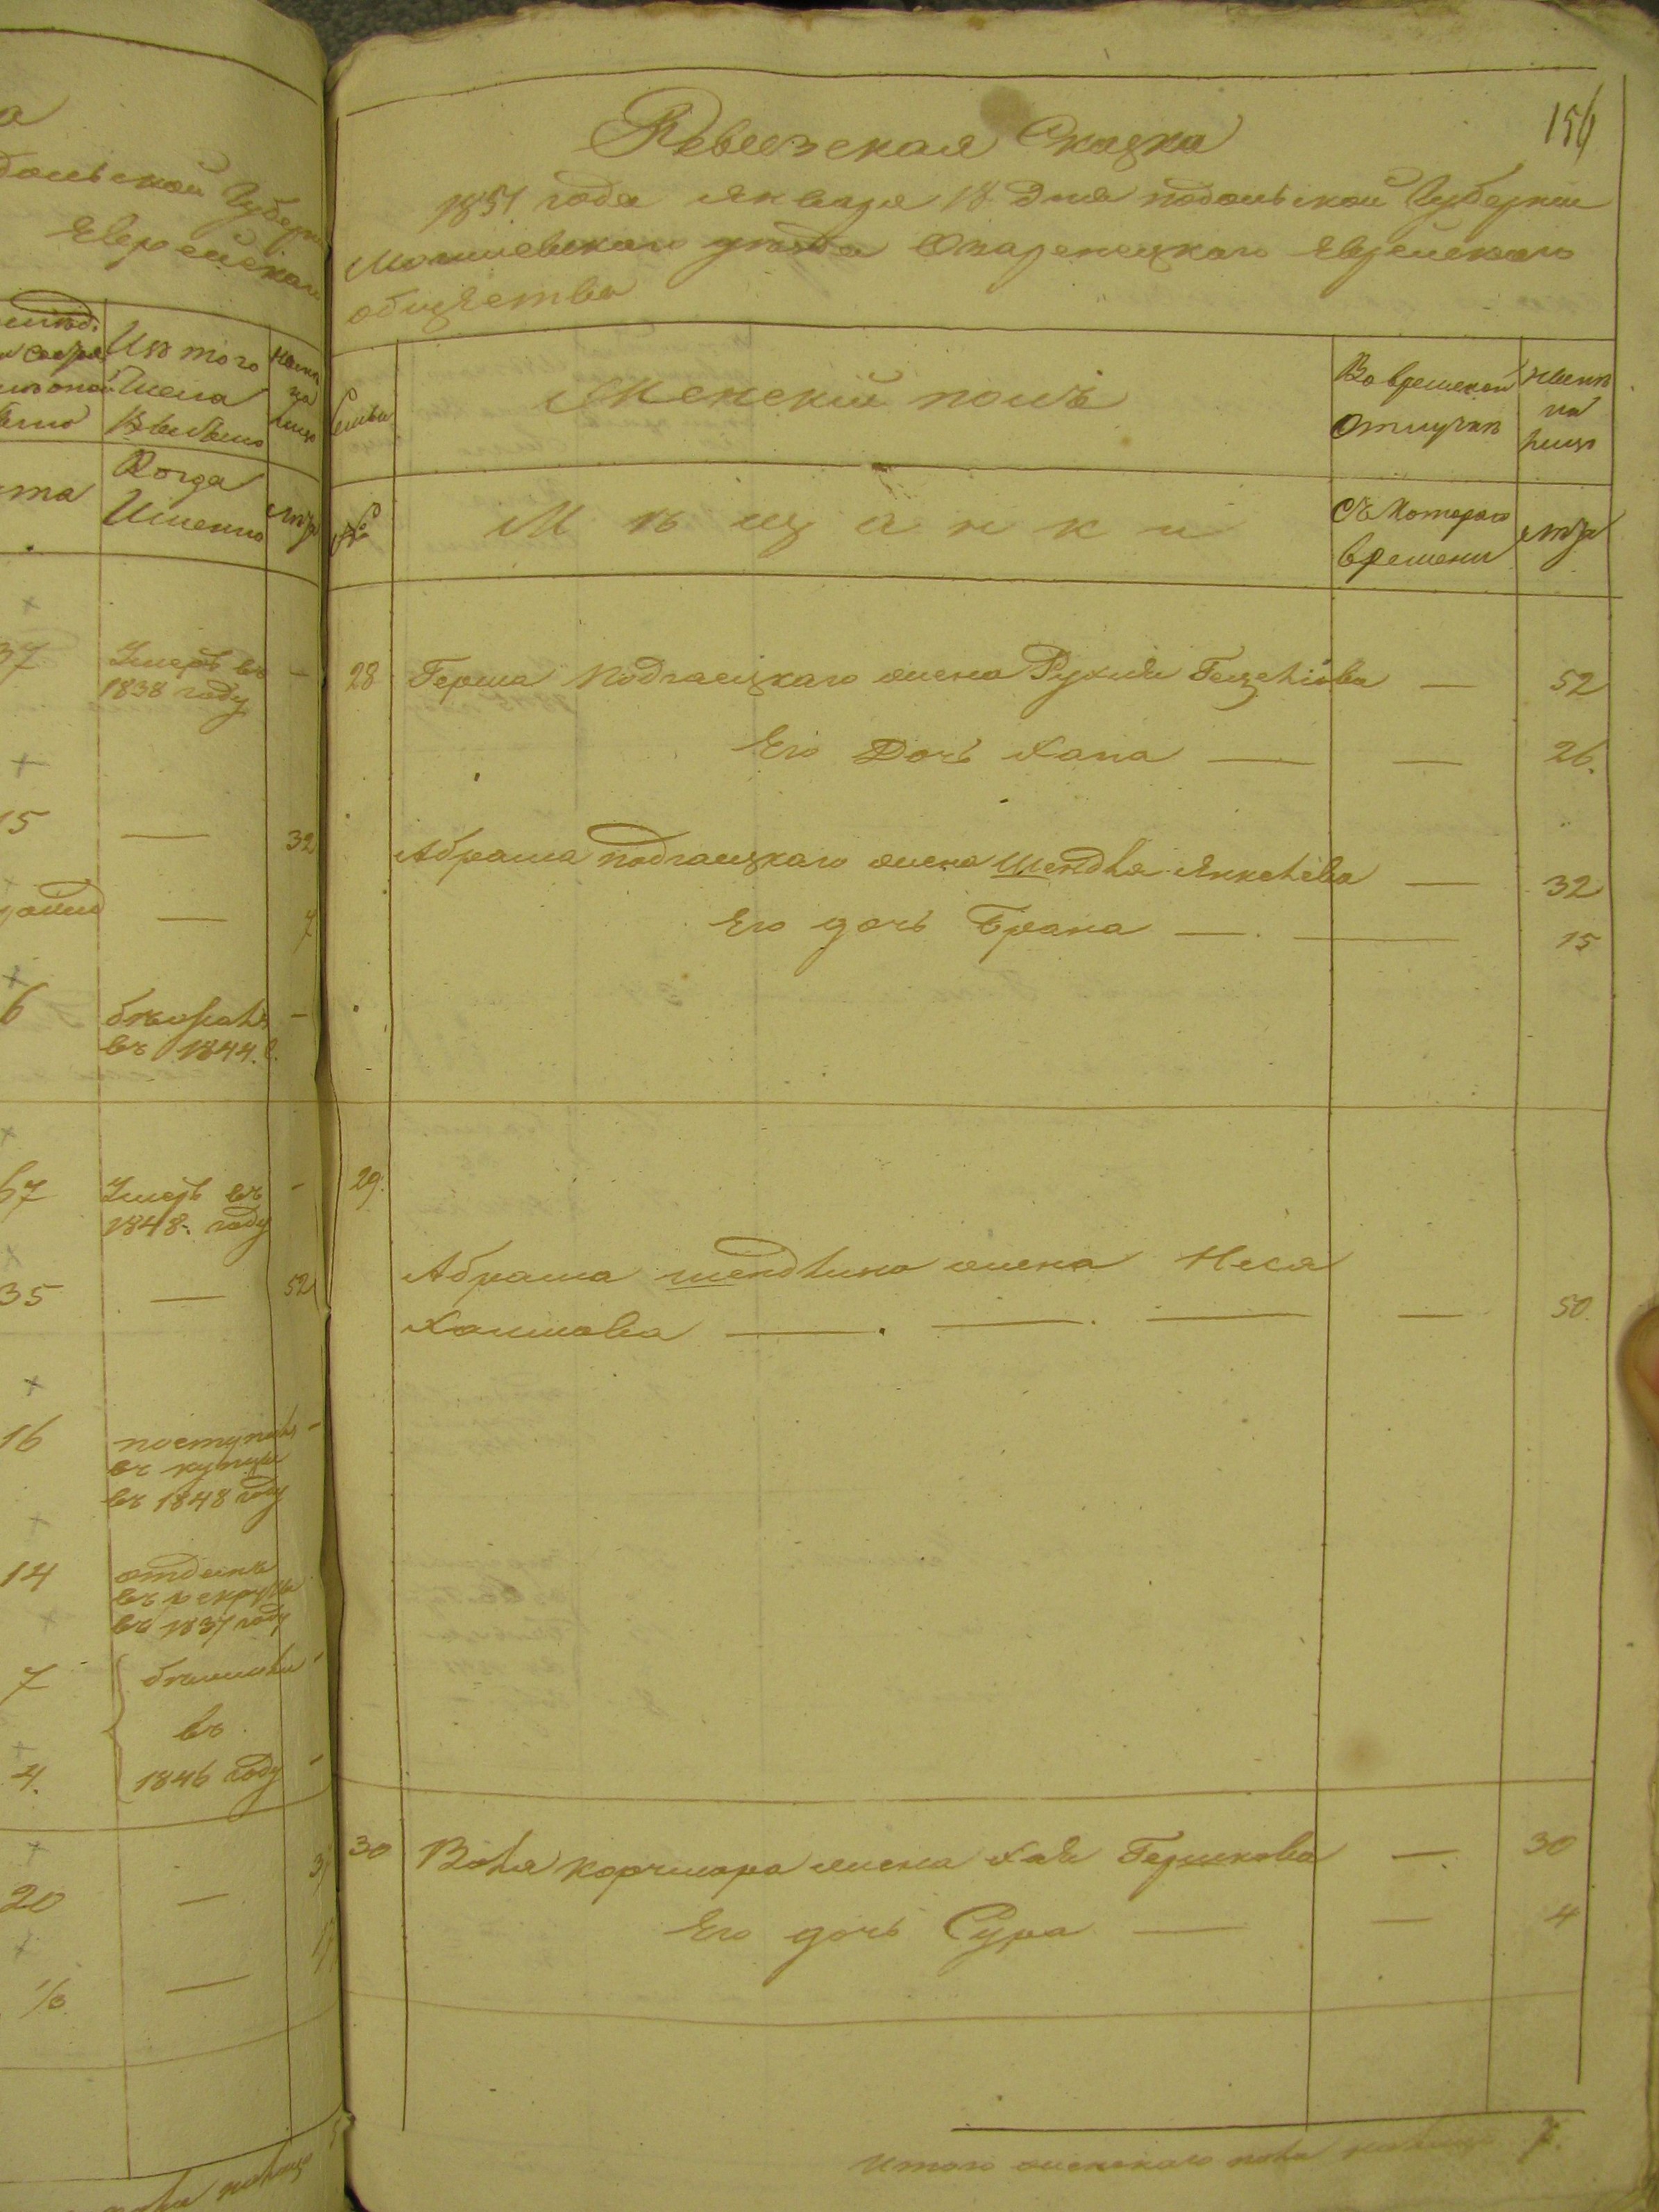 а
дольской Губерн
Еврейскаго
Изъ того
числа
Выбыло
Когда
Именно
лѣта
37
Умеръ въ
1838 году
—
15
—
32
—
7
6
бѣжалъ
въ 1844. г.
—
67
Умеръ въ
1848. году
—
35
—
52
16
поступилъ
въ купцы
въ 1848 году
14
отданъ
въ рекруты
въ 1837 году
7
бѣжали
въ
4.
1846 году
20
—
1/3
—
156
Ревизская Сказка
1851 года января 18 дня подольской Губерніи
Могилевскаго уѣзда Озаренецкаго Еврейскаго
общества
Семьи
Женскій полъ
Во временной
отлучкѣ
Нынѣ
на
лицо
№
Мѣщанки
Съ Котораго
времени
лѣта
28 Герша Подгаецкаго жена Рухля Гецелiова — 52
Его Дочь Хана — — 26.
Абрама подгаецкаго жена Шендля Янкелева — 32
Его дочь Брана — — 15
29.
Абрама шендлина жена Неся
Хаимова — . — . — — 50.
30 Воля корчмара жена Хая Гершкова — 30
Его дочь Сура — — 4
Итого женскаго пола налицо 7.